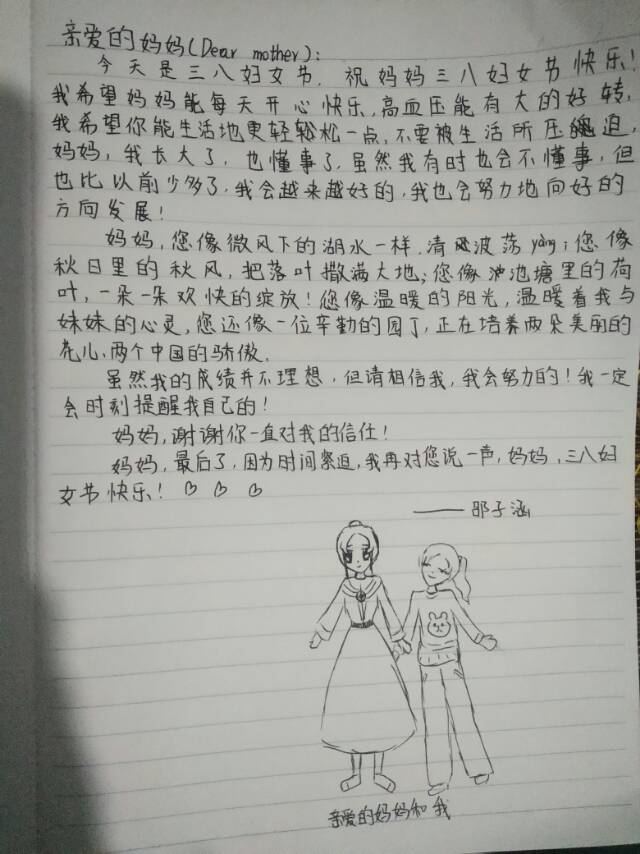 亲爱的妈妈(Dear mother):
今天是三八妇女节.祝妈妈三八妇女节快乐!
我希望妈妈能每天开心快乐,高血压能有大的好转,
我希望你能生活地更轻松一点,不要被生活所压迫,
妈妈,我长大了,也懂事了,虽然我有时也会不懂事,但
也比以前少多了,我会越来越好的,我也会努力地向好的
方向发展!
妈妈,您像微风下的湖水一样.清风波荡yàng;您像
秋日里的秋风,把落叶撒满大地;您像池塘里的荷
叶,一朵一朵欢快的绽放!您像温暖的阳光,温暖着我与
妹妹的心灵,您还像一位辛勤的园丁,正在培养两朵美丽的
花儿、两个中国的骄傲.
虽然我的成绩并不理想,但请相信我,我会努力的!我一定
会时刻提醒我自己的!
妈妈,谢谢你一直对我的信任!
妈妈,最后了,因为时间紧迫,我再对您说一声,妈妈,三八妇
女节快乐!♡ ♡ ♡
——邵子涵
亲爱的妈妈和我